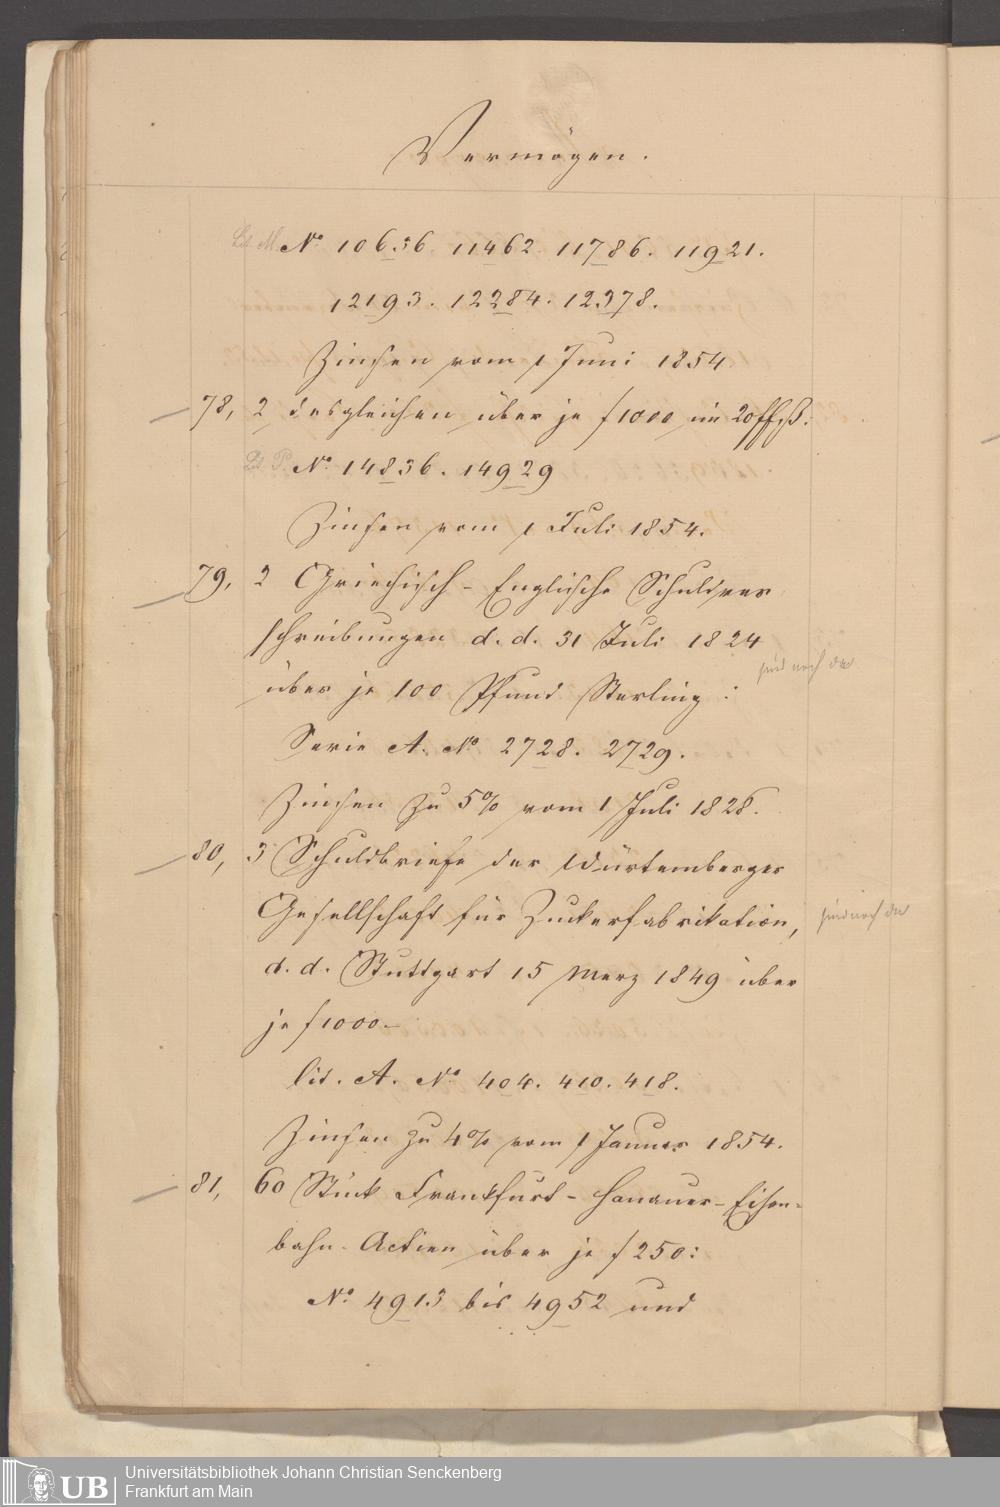 Vermögen.
Lit. M. No. 10636. 11462. 11786. 11921.
12193. 12284. 12378.
Zinsen vom 1 Juni 1854
78, 2 desgleichen über je f 1000 im
Lit. P. No. 14836. 14929
Zinsen vom 1 Juli 1854.
79, 2 Griechisch-Englische Schuldver
schreibungen d. d. 31 Juli 1824
sind noch da
über je 100 Pfund Sterling :
Serie A. No. 2728. 2729.
Zinsen zu 5% vom 1 Juli 1826.
80, 3 Schuldbriefe der Würtemberger
Gesellschaft für Zuckerfabrikation,
sind noch da
d. d. Stuttgart 15 Merz 1849 über
je f 1000 –
lit. A. No. 404. 410. 418.
Zinsen zu 4% vom 1 Januar 1854.
81, 60 Stück Frankfurt-Hanauer-Eisen-
bahn-Actien über je f 250:
No. 4913 bis 4952 und
UB
Universitätsbibliothek Johann Christian Senckenberg
Frankfurt am Main